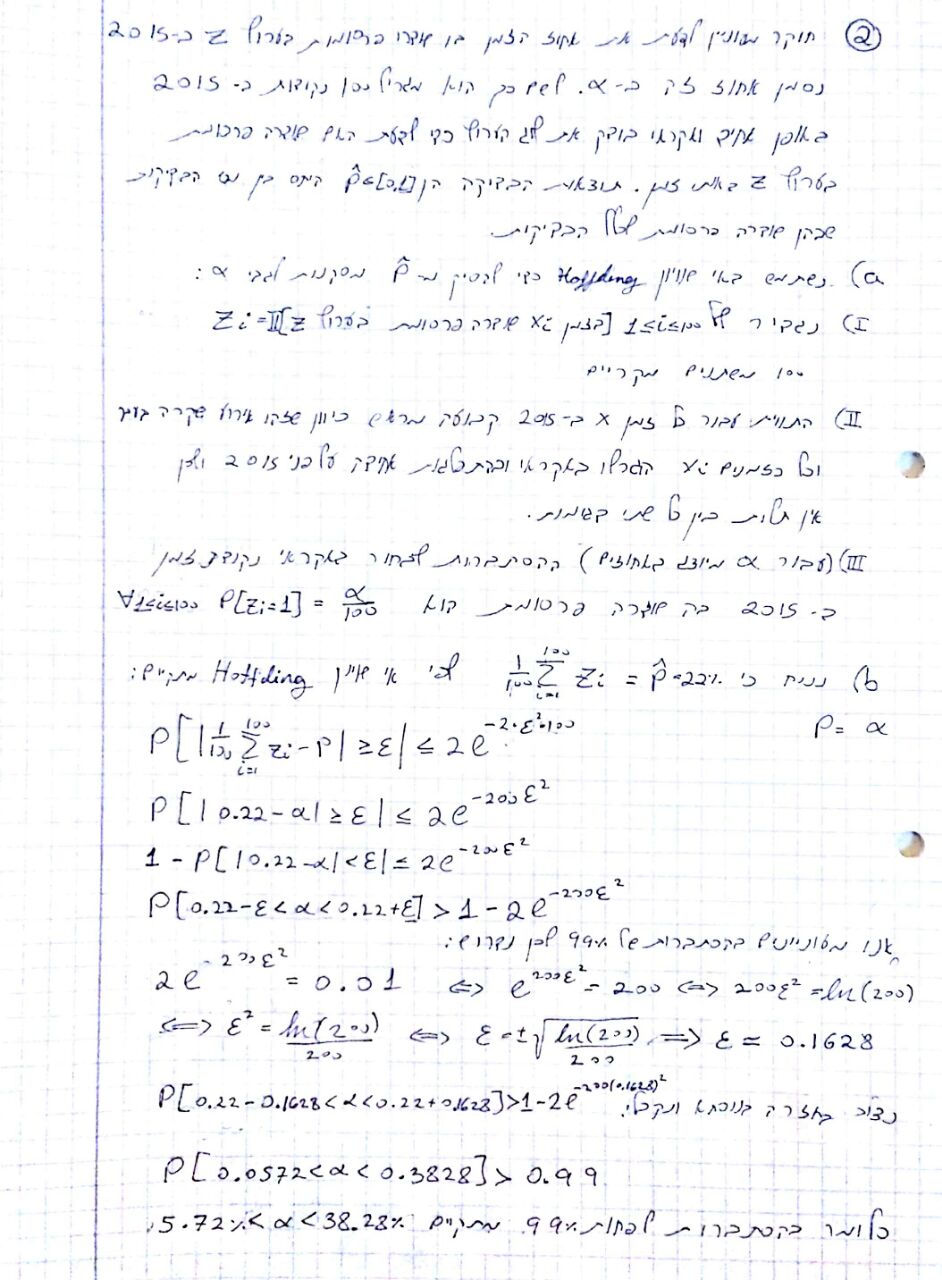 ② חוקר מעוניין לדעת את אחוז הזמן בו שודרו פרסומות בערוץ Z ב-2015
נסמן אחוז זה ב-α. לשם כך הוא מגריל 100 נקודות ב-2015
באופן אחיד ואקראי בודק את לוג הערוץ כדי לדעת האם שודרה פרסומת
בערוץ Z באותו זמן. תוצאות הבדיקה הן p̂∈[0,1] היחס בין מס' הבדיקות
שבהן שודרה פרסומת לכלל הבדיקות.
a) נשתמש באי שוויון Hoffding כדי להסיק מ-p̂ מסקנות לגבי α:
I) נגדיר לכל 1≤i≤100 Zi=𝕀[בזמן xi שודרה פרסומת בערוץ Z]
100 משתנים מקריים
II) התווית עבור כל זמן x ב-2015 קבועה מראש כיוון שזהו אירוע שקרה בעבר
וכל הזמנים xi הוגרלו באקראי ובהתפלגות אחידה על פני 2015 ולכן
אין תלות בין כל שתי דגימות.
III) (עבור α מיוצג באחוזים) ההסתברות לבחור באקראי נקודת זמן
ב-2015 בה שודרה פרסומת הוא ∀1≤i≤100 P[Zi=1] = α/100
b) נניח כי 1/100 Σ_{i=1}^{100} Zi = p̂=22% לפי אי שוויון Hoffding מתקיים:
P= α
P[|1/100 Σ_{i=1}^{100} zi - P| ≥ε| ≤ 2e^{-2·ε²·100}
P[|0.22-α|≥ε| ≤ 2e^{-200ε²}
1 - P[|0.22-α|<ε|≤ 2e^{-200ε²}
P[0.22-ε<α<0.22+ε] > 1-2e^{-200ε²}
אנו מעוניינים בהסתברות של 99% לכן נדרוש:
2e^{-200ε²} = 0.01 ⟺ e^{200ε²} = 200 ⟺ 200ε² = ln(200)
⟺ ε² = ln(200)/200 ⟺ ε=±√(ln(200)/200) ⟹ ε ≃ 0.1628
נציב בחזרה בנוסחא ונקבל: P[0.22-0.1628<α<0.22+0.1628]>1-2e^{-200(0.1628)²}
P[0.0572<α<0.3828]> 0.99
כלומר בהסתברות לפחות 99% מתקיים 5.72%<α<38.28%.